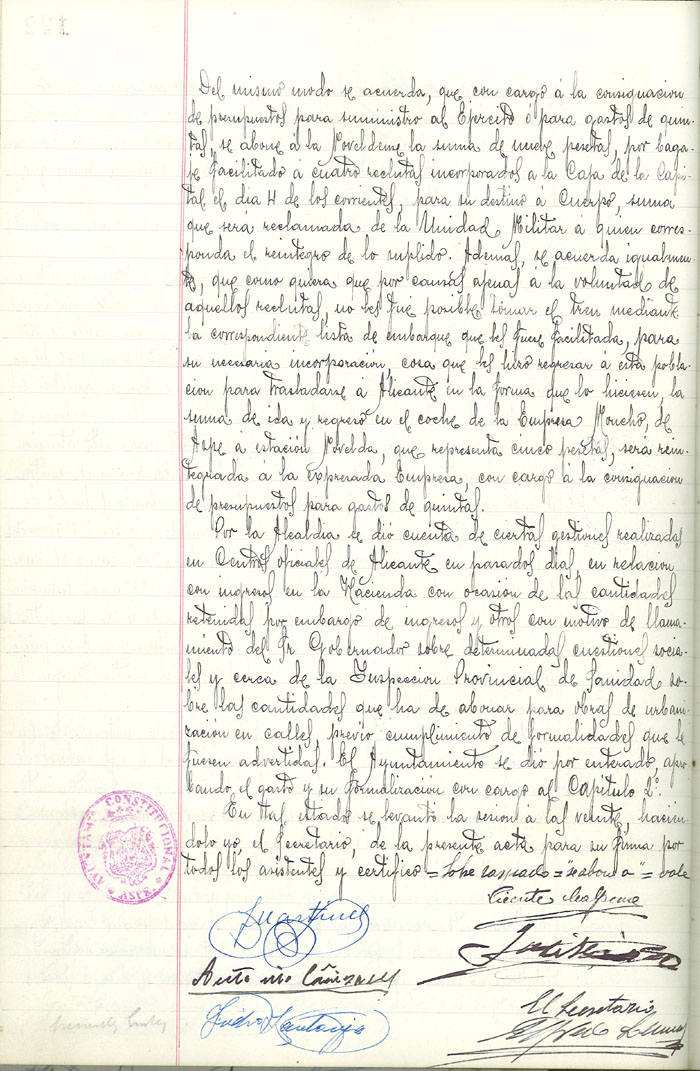 Del mismo modo se acuerda, que con cargo á la consignacion
de presupuestos para suministro al Ejercito ó para gastos de quin-
tas, se abone á la Noveldense la suma de nueve pesetas, por baga-
je facilitado á cuatro reclutas incorporados á la Caja de la Capi-
tal el dia 4 de los corrientes, para su destino á Cuerpo, suma
que será reclamada de la Unidad Militar á quien corres-
ponda el reintegro de lo suplido. Ademas, se acuerda igualmen-
te, que como quiera que por causas ajenas á la voluntad de
aquellos reclutas, no les fue posible tomar el tren mediante
la correspondiente lista de embarque que les fuese facilitada, para
su necesaria incorporación, cosa que les hizo regresar á esta pobla-
cion para trasladarse á Alicante en la forma que lo hiciesen, la
suma de ida y regreso en el coche de la Empresa Moncho, de
Aspe a estación Novelda, que representa cinco pesetas, será rein-
tegrada á la expresada Empresa, con cargo á la consignacion
de presupuestos para gastos de quintas.
Por la Alcaldia se dió cuenta de ciertas gestiones realizadas
en Centros oficiales de Alicante en pasados dias, en relacion
con ingresos en la Hacienda con ocasion de las cantidades
retenidas por embargo de ingresos y otros con motivo de llama-
miento del Sr Gobernador sobre determinadas cuestiones socia-
les y cerca de la Inspeccion Provincial de Sanidad so-
bre las cantidades que ha de abonar para obras de urbani-
zación en calles, previo cumplimiento de formalidades que le
fueren advertidas. El Ayuntamiento se dió por enterado, apro-
bando, el gasto y su formalización con cargo al Capitulo 2º.
En tal estado se levantó la sesion á las veinte, hacien-
dolo yo, el Secretario, de la presente acta para su firma por
todos los asistentes y certifico = Sobre raspado = "se abone a" = vale
AYUNTAMTO CONSTITUCIONAL
ASPE
Vicente
Martinez
Antonio Cañizares
Isidro Santonja
El Secretario